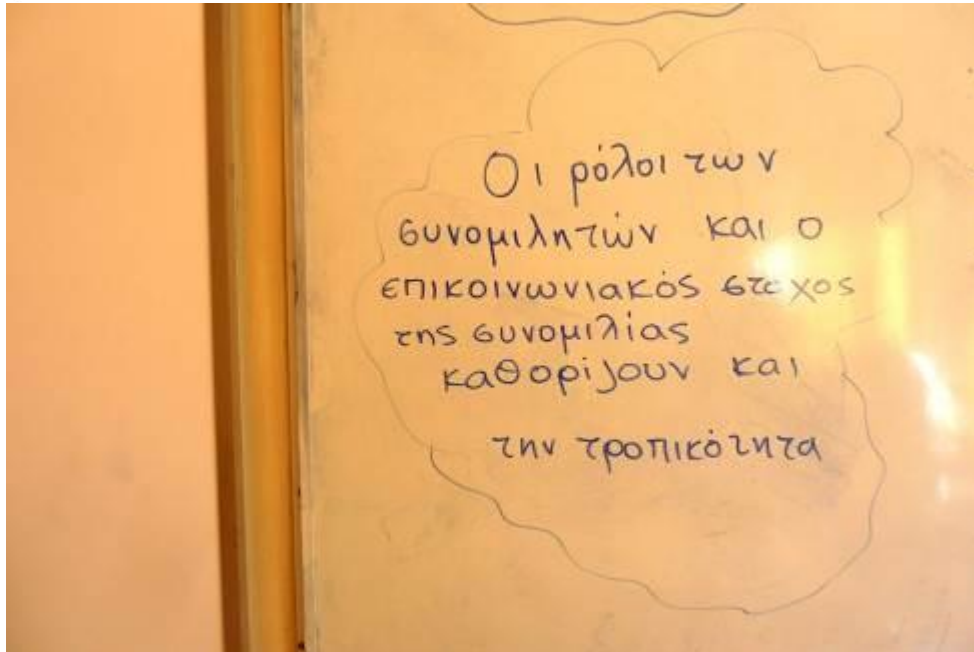 Οι ρόλοι των
συνομιλητών και ο
επικοινωνιακός στόχος
της συνομιλίας
καθορίζουν και
την τροπικότητα